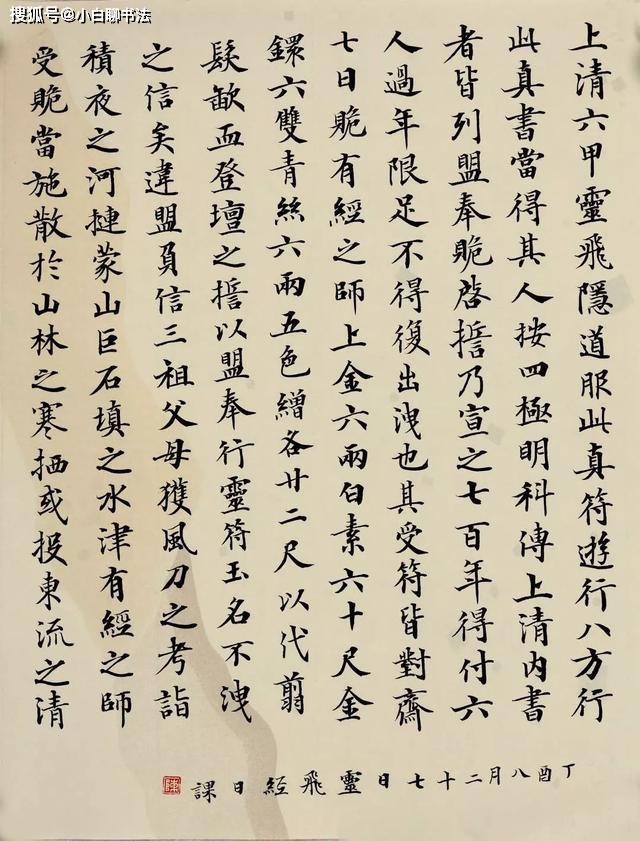 搜狐号@小白聊书法
上清六甲靈飛隱道服此真符遊行八方行
此真書當得其人按四極明科傳上清內書
者皆列盟奉貺啓誓乃宣之七百年得付六
人過年限足不得復出洩也其受符皆對齋
七日貺有經之師上金六兩白素六十尺金
鐶六雙青絲六兩五色繒各廿二尺以代翦
髮歃血登壇之誓以盟奉行靈符玉名不洩
之信矣違盟負信三祖父母獲風刀之考詣
積夜之河摙蒙山巨石填之水津有經之師
受貺當施散於山林之寒栖或投東流之清
丁酉八月二十七日靈飛經日課
陳